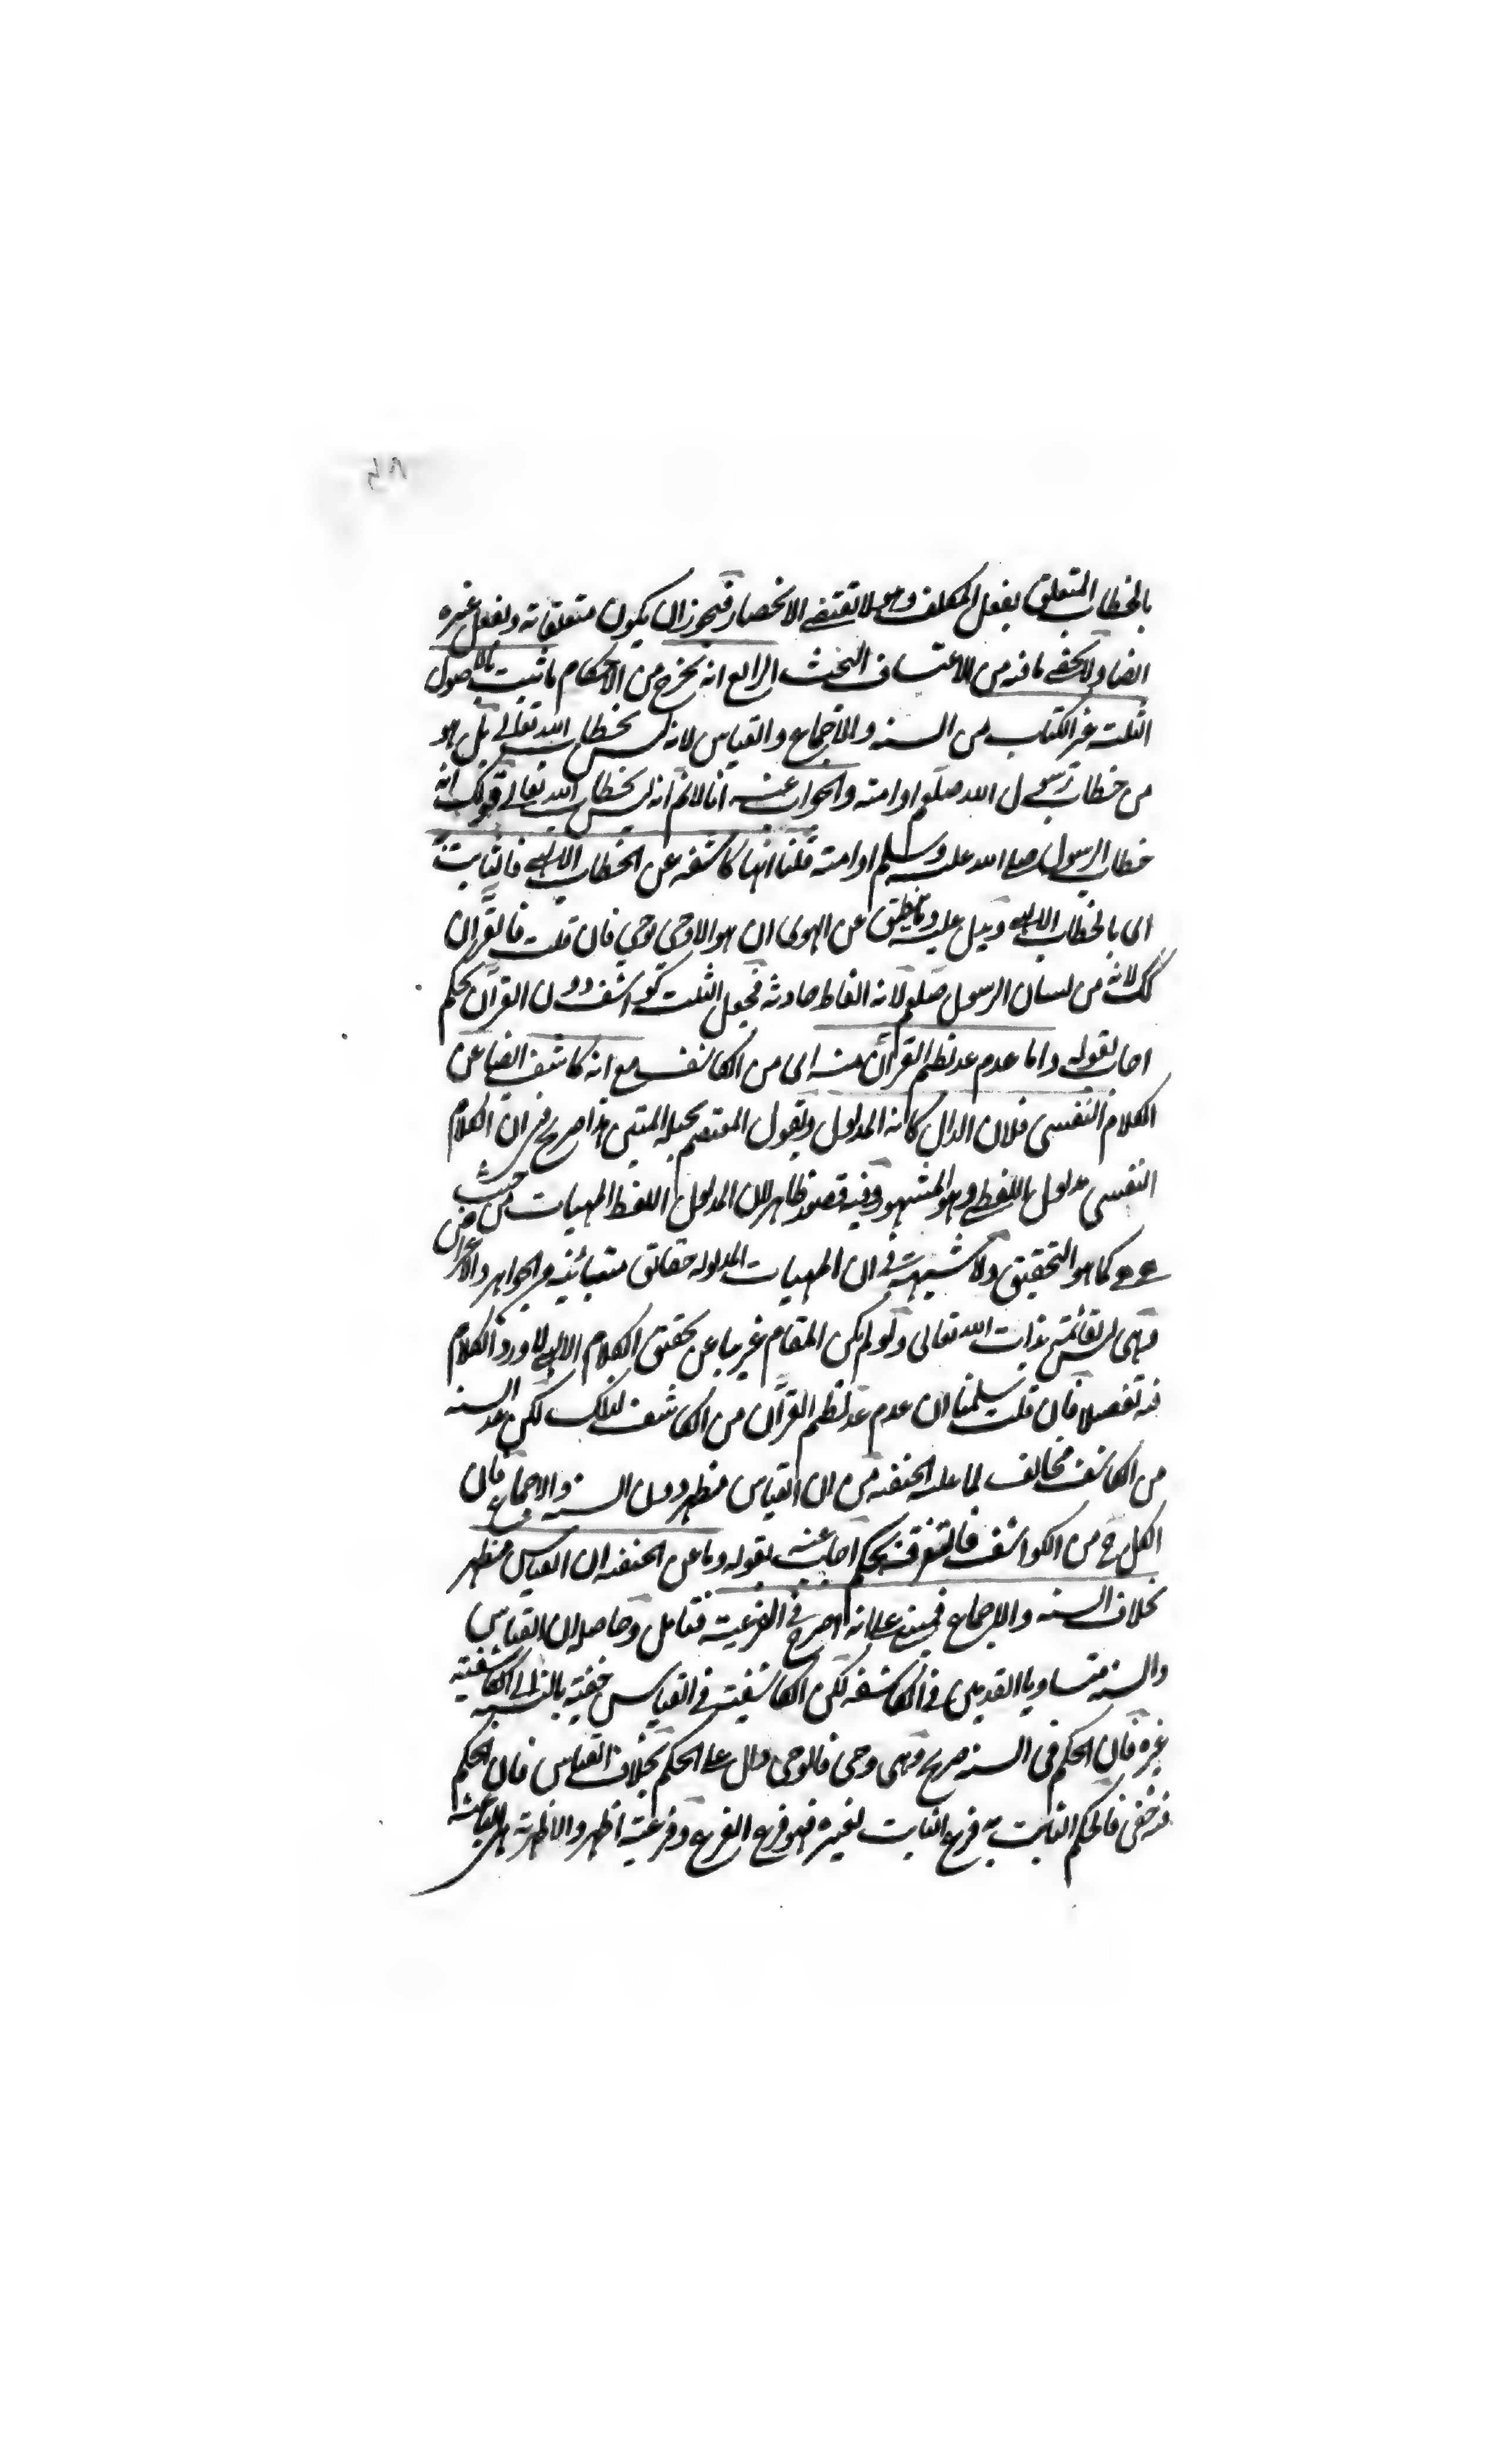 بالخطاب المتعلق بفعل المكلف وهو لا تقتضي الانحصار فيجوز ان يكون متعلقا به وبفعل غيره
ايضا ولا يخفى ما فيه من الاعتساف البحث الرابع انه يخرج من الاحكام ما ثبت بالاصول
الثلثة غير الكتاب من السنة والاجماع والقياس لانه ليس بخطاب الله تعالى بل هو
من خطاب رسول الله صلعم او امته والجواب عنه انا لانم انه ليس بخطاب الله تعالى قولك انه
خطاب الرسول صلى الله عليه وسلم او امته قلنا انها كاشفة عن الخطاب الالهي فالثابت
اى بالخطاب الالهي ويدل عليه وما ينطق عن الهوى ان هو الا وحي يوحى فان قلت فالقرآن
كك لانه من لسان الرسول صلعم لانه الفاظ حادثة فجعل الثلث كواشف دون القرآن تحكم
اجاب بقوله واما عدم عد نظم القرآن منه اى من الكاشف مع انه كاشف ايضا عن
الكلام النفسى فلان الدال كانه المدلول ويقول المعتصم بحبله المتين هذا صريح في ان الكلام
النفسى مدلول اللفظى وهو المشهور وفيه قصور ظاهر لان المدلول اللفظ المهيات من حيث
هى هى كما هو التحقيق ولا شبهة في ان المهيات المدلوله حقائق متبائنة من الجواهر والاعراض
وهى ليس بقائمة بذات الله تعالى ولو لم يكن المقام غريبا عن تحقيق الكلام الالهي لاورد الكلام
فيه تفصيلا فان قلت سلمنا ان عدم عد نظم القرآن من الكاشف لذلك لكن عد السنة
من الكاشف مخالف لما عليه الحنفية من ان القياس مظهر دون السنة والاجماع فان
الكل ح من الكواشف فالتفرقة تحكم اجاب عنه بقوله وما عن الحنفية ان القياس مظهر
بخلاف السنة والاجماع فمبنى على انه اصرح في الفرعية فتامل وحاصله ان القياس
والسنة متساويا القدمين في الكاشفة لكن الكاشفية في القياس خفية بالنسبة الى الكاشفية
غيره فان الحكم في السنة صريح وهى وحى فالوحى دال على الحكم بخلاف القياس فان الحكم
فيه خفى فالحكم الثابت به فرع الثابت لغيره فهو فرع الفرع وفرعيته اظهر والاظهرية